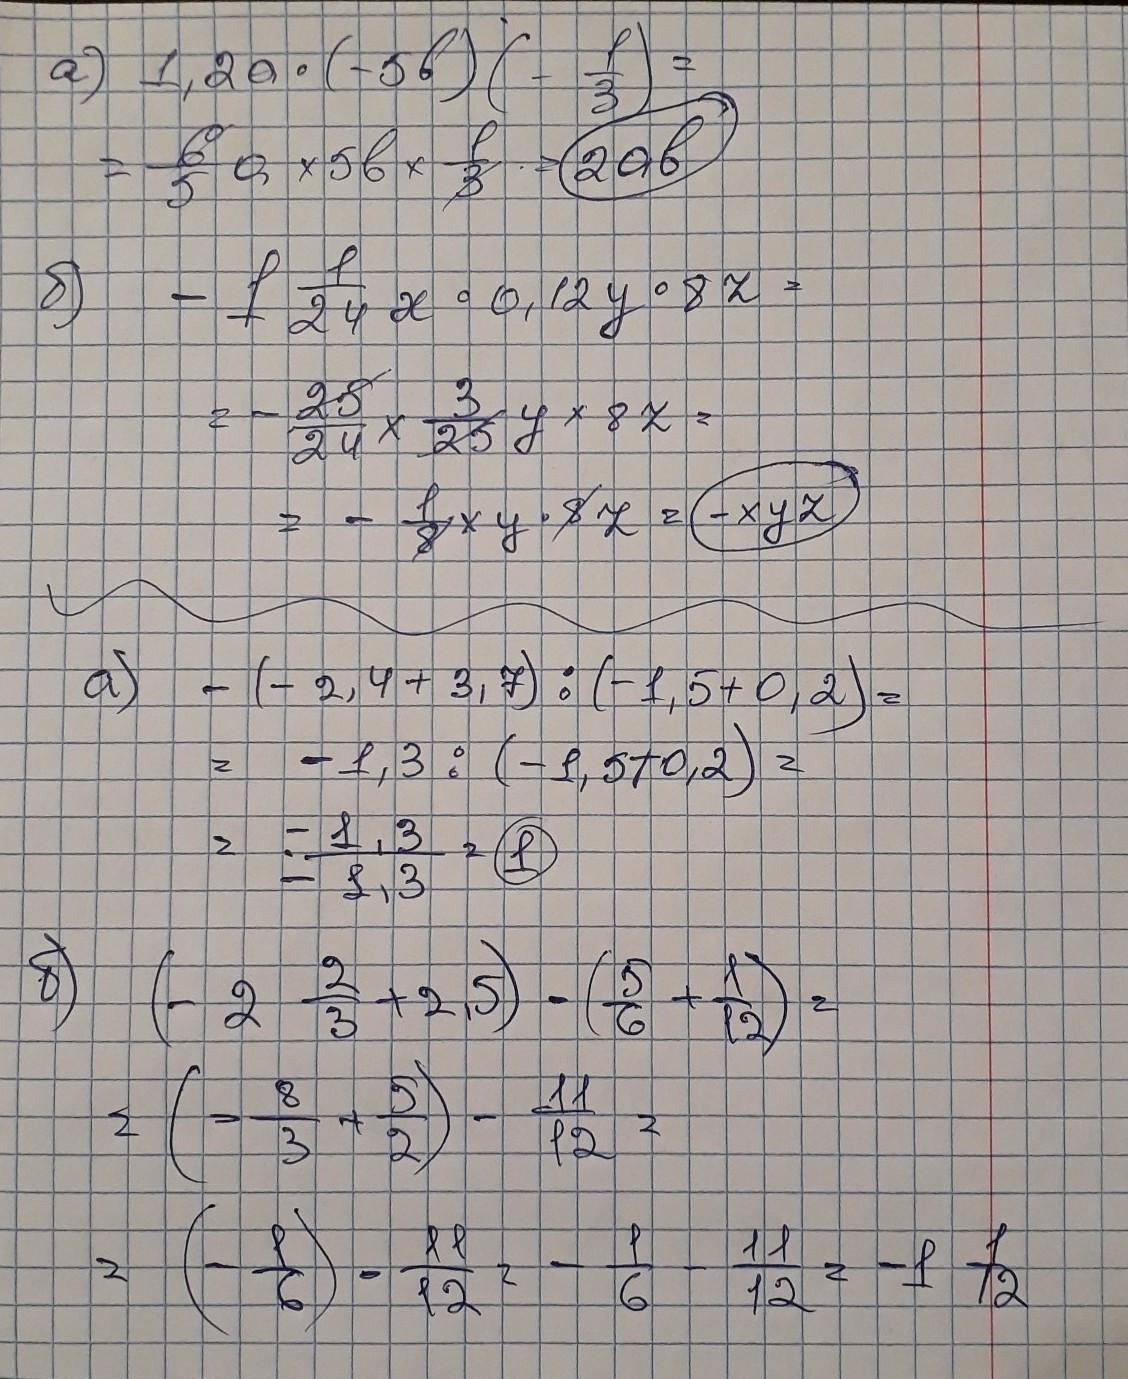 а) 1,2a·(-5b)(-1/3)=
= 6/5 a × 5b × 1/3 = 2ab
б) -1 1/24 x · 0,12y · 8z =
= -25/24 × 3/25 y × 8z =
= -1/8 xy · 8z = -xyz
а) -(-2,4+3,7):(-1,5+0,2)=
= -1,3:(-1,5+0,2)=
= -1,3/-1,3 = 1
б) (-2 2/3+2,5)-(5/6+1/12)=
= (-8/3+5/2)-11/12=
= (-1/6)-11/12=-1/6-11/12=-1 1/12